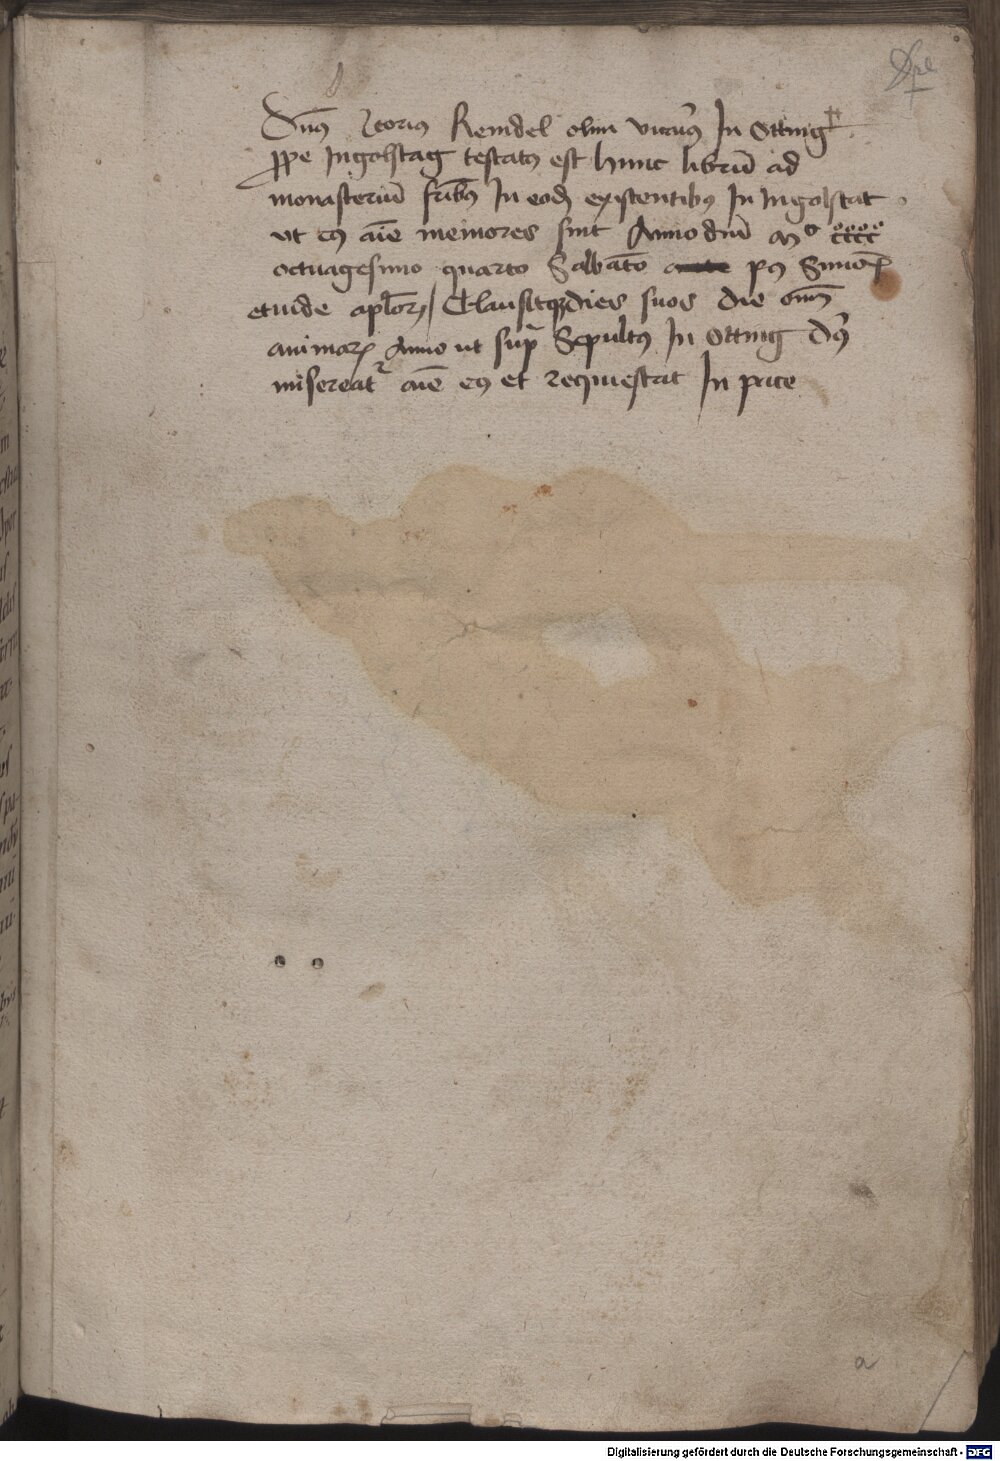 Dn̄s Ieorius Remdel olim vicari9 In Otting
ꝓpe Ingolstag testatus est hunc librū ad
monasteriū fr̄ibus In eodē existentibus In Ingolstat
vt eius aīe memores sint Anno dn̄i mo cccc
octuagesimo quarto Sabbato post Simonis
et iude apl̄orꝫ / Clausitqꝫ dies suos die om̄
animarꝫ Anno ut supra Sepultus In Otting d9
misereatr aīe eius et requiescat In pace
a
Digitalisierung gefördert durch die Deutsche Forschungsgemeinschaft - DFG